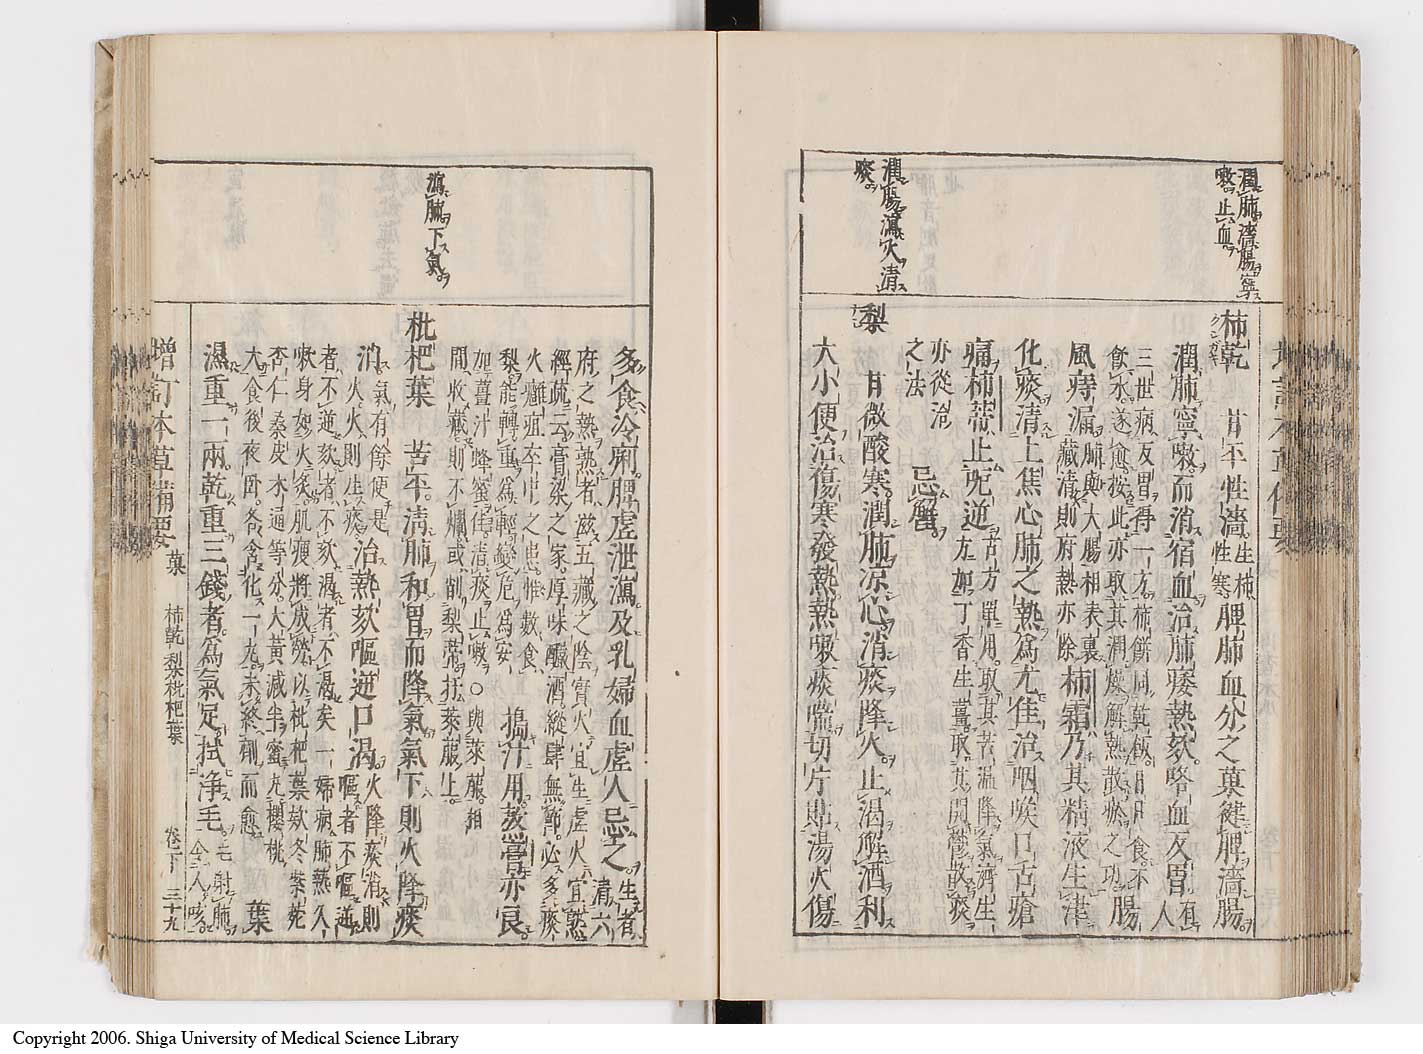 潤肺濇腸寧
嗽止血
柿乾 甘平性濇生柿性寒脾肺血分之菓健脾濇腸
潤肺寧嗽而消宿血治肺痿熱欬咯血反胃有人
三世病反胃得一方柿餅同乾飯日日食不
飲水遂愈按此亦取其潤燥解熱散瘀之功腸
風痔漏肺與大腸相表裏藏清則府熱亦除柿霜乃其精液生津
化痰清上焦心肺之熱爲尤佳治咽喉口舌瘡
痛柿蒂止呃逆古方單用取其苦温降氣濟生方加丁香生薑取其開鬱散痰
亦從治
之法 忌蟹
潤腸瀉火清
痰
梨 甘微酸寒潤肺凉心消痰降火止渴解酒利
大小便治傷寒發熱熱嗽痰喘切片貼湯火傷
多食冷痢脾虚泄瀉及乳婦血虚人忌之生者清六
府之熱熟者滋五藏之陰實火宜生虚火宜熟
經疏云膏粱之家厚味釅酒縱肆無節必多痰
火癰疽卒中之患惟數食
梨能轉重爲輕變危爲安 搗汁用熬膏亦良
加薑汁蜂蜜佳清痰止嗽○與萊菔相
間收藏則不爛或削梨蒂扦萊菔上
瀉肺下氣
枇杷葉 苦平清肺和胃而降氣氣下則火降痰
消氣有餘便是火火則生痰治熱欬嘔逆口渴火降痰消則嘔者不嘔逆
者不逆欬者不欬渴者不渴矣一婦病肺熱久
嗽身如火炙肌瘦將成勞以枇杷葉欬冬紫菀
杏仁桑皮木通等分大黄减半蜜丸櫻桃
大食後夜臥各含化一丸未終劑而愈 葉
濕重一兩乾重三錢者爲氣足拭浄毛毛射肺令人咳
増訂本草備要 菓 柿乾 梨 枇杷葉 卷下 三十九
Copyright 2006. Shiga University of Medical Science Library